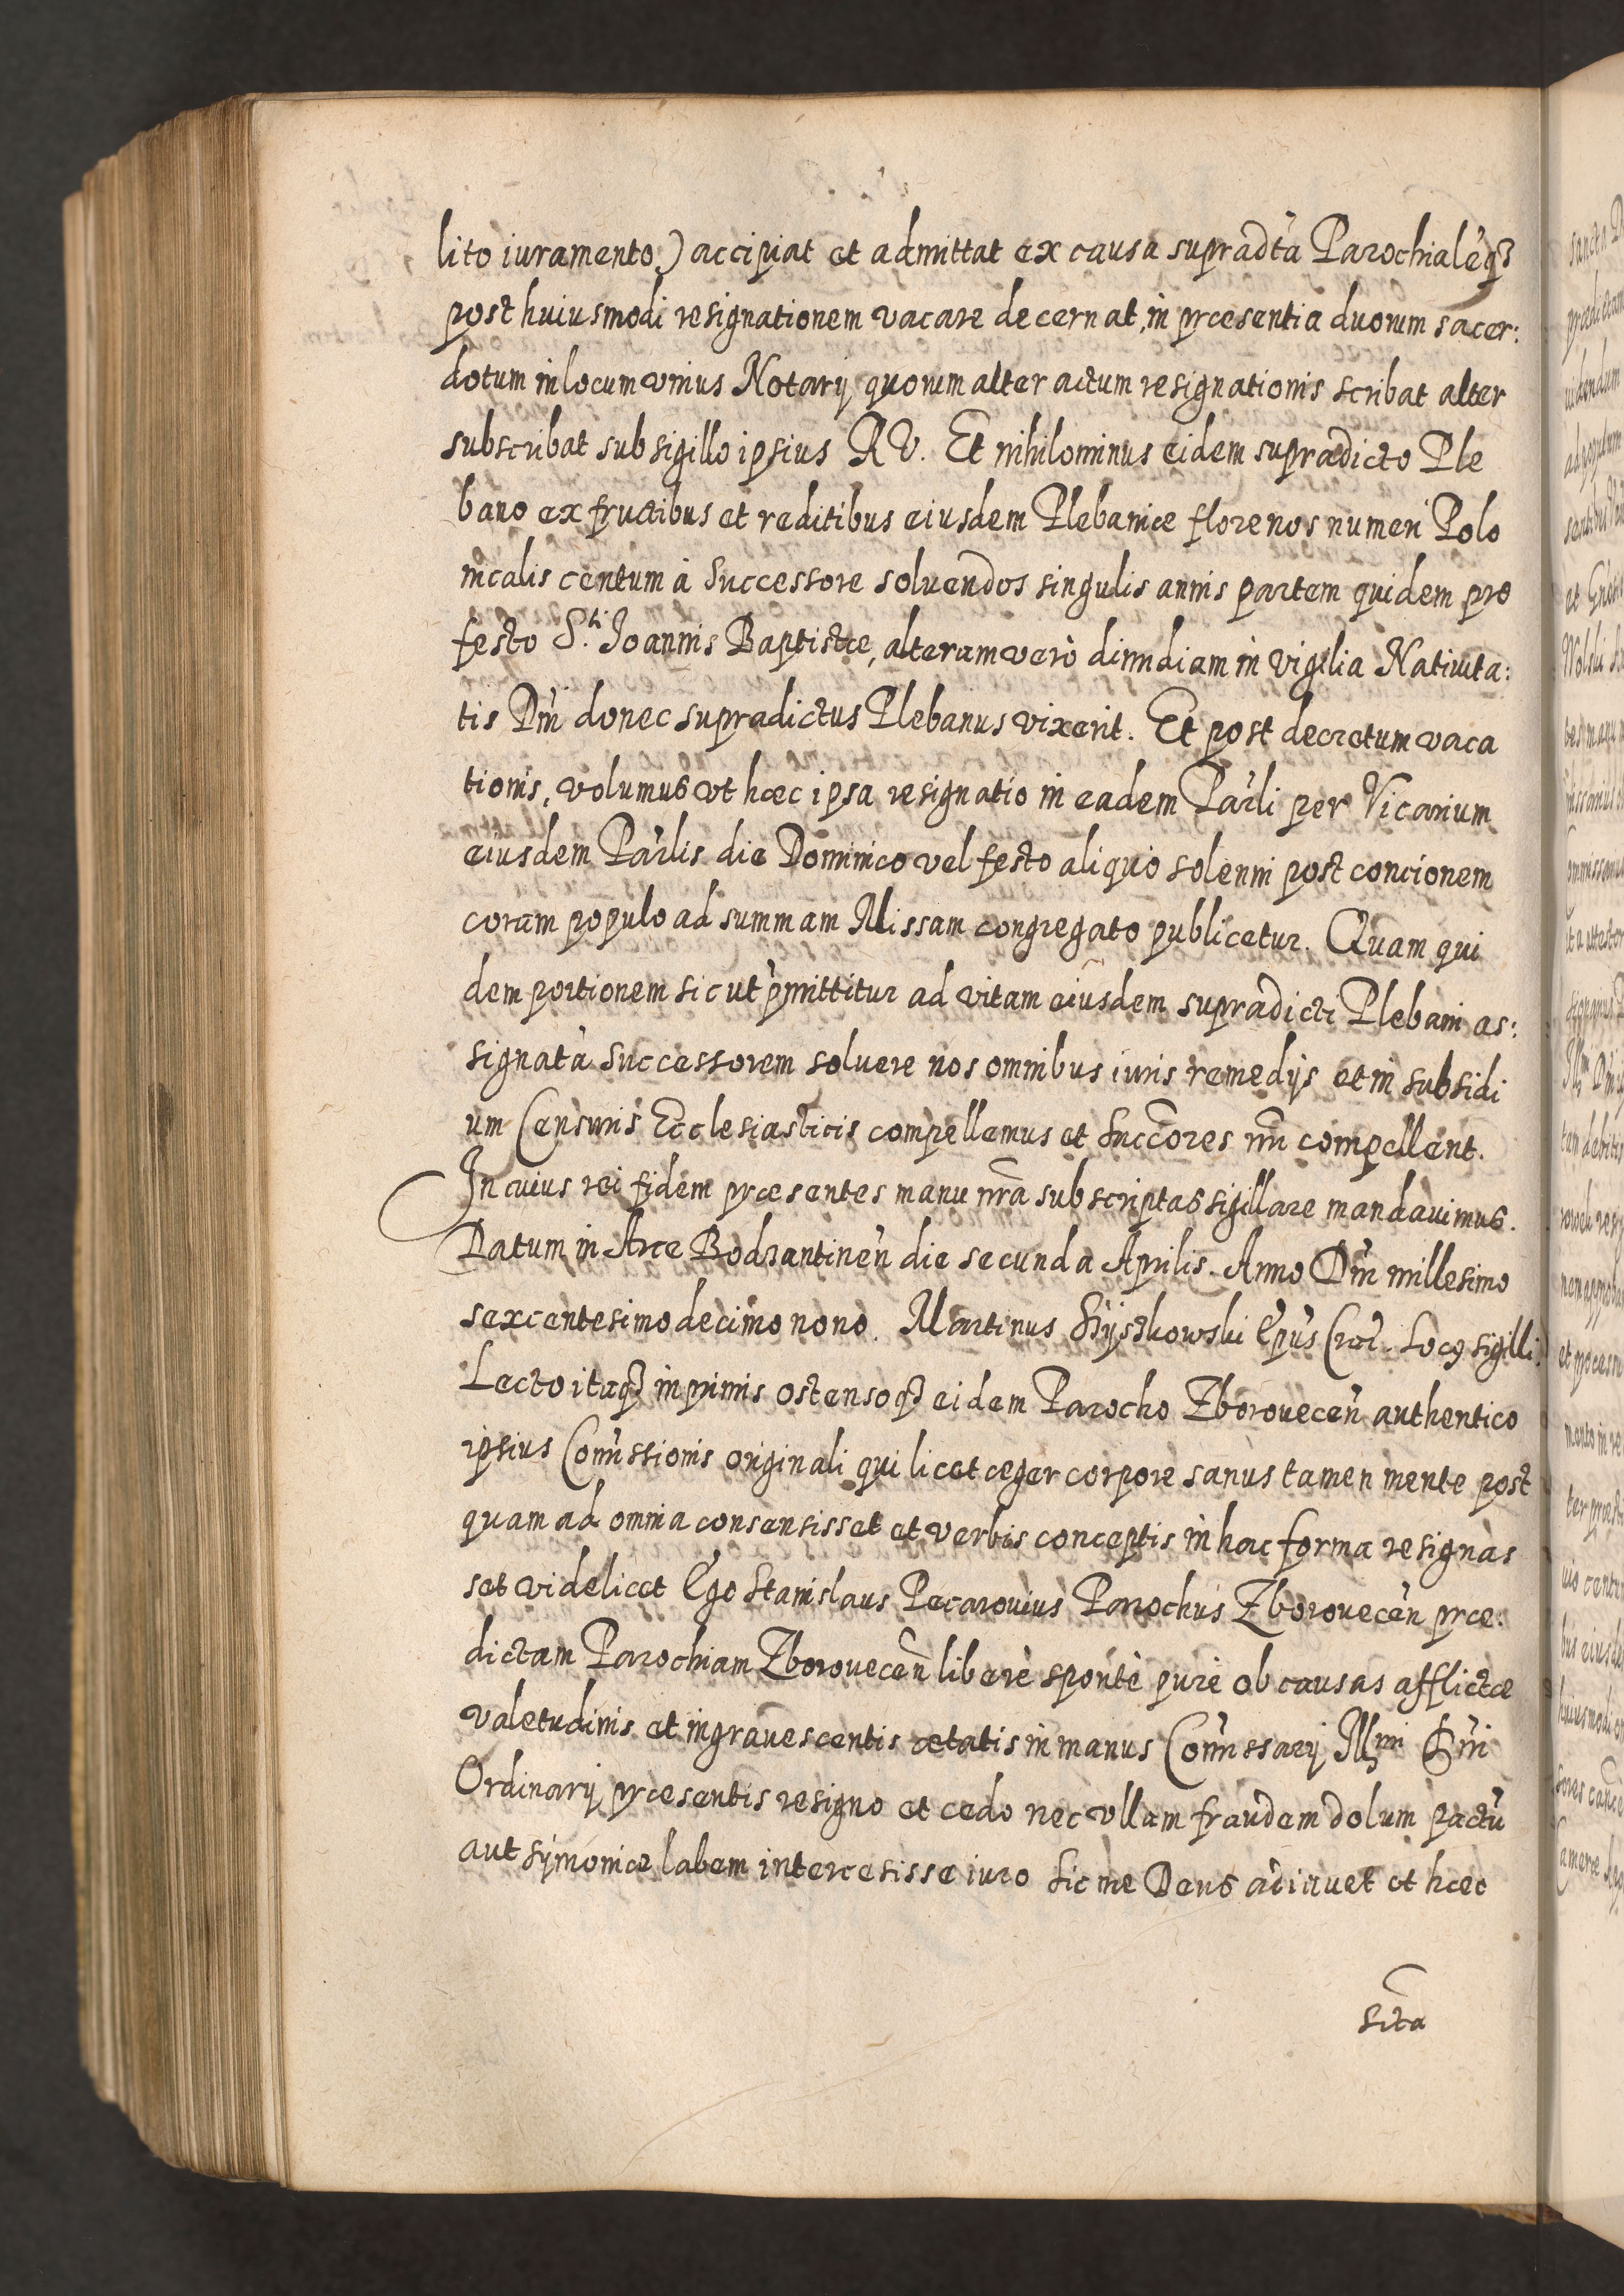 lito iuramento) accipiat et admittat ex causa supradta Parochialẽq3
post huiusmodi resignationem vacare decernat, in præsentia duorum sacer:
dotum in locum vnius Notarij quorum alter actum resignationis scribat alter
subscribat sub sigillo ipsius RV. Et nihilominus eidem supradicto Ple
bano ex fructibus et reditibus eiusdem Plebaniæ florenos numeri Polo
nicalis centum à Successore soluendos singulis annis partem quidem pro
festo S.ti Joannis Baptistæ, alteram verò dimidiam in vigilia Natiuita:
tis Dni donec supradictus Plebanus vixerit. Et post decretum vaca
tionis, volumus vt hæc ipsa resignatio in eadem Parli per Vicarium
eiusdem Parlis die Dominico vel festo aliquo solenni post concionem
coram populo ad summam Missam congregato publicetur. Quam qui
dem portionem sic ut pmittitur ad vitam eiusdem supradicti Plebani as:
signatã Successorem soluere nos omnibus iuris remedijs et in subsidi
um Censuris Ecclesiasticis compellemus et Succores nri compellent.
In cuius rei fidem præsentes manu nra subscriptas sigillare mandauimus.
Datum in Arce Bodzantinen die secunda Aprilis. Anno Dni millesimo
sexcentesimo decimo nono. Martinus Szyszkowski Epus Crac. Loc9 sigilli.
Lecto itaq3 inprimis ostensoq3 eidem Parocho Zborouecen authentico
ipsius Comissionis originali qui licet æger corpore sanus tamen mente post
quam ad omnia consensisset et verbis conceptis in hac forma resignas
set videlicet Ego Stanislaus Pecarouius Parochus Zborouecen præ:
dictam Parochiam Zborouecen liberè spontè purè ob causas afflictæ
valetudinis et ingrauescentis ætatis in manus Comissarij Illmi Dni
Ordinarij præsentis resigno et cedo nec vllam fraudem dolum pactũ
aut symoniæ labem intercesisse iuro sic me Deus adiuuet et hæc
scta